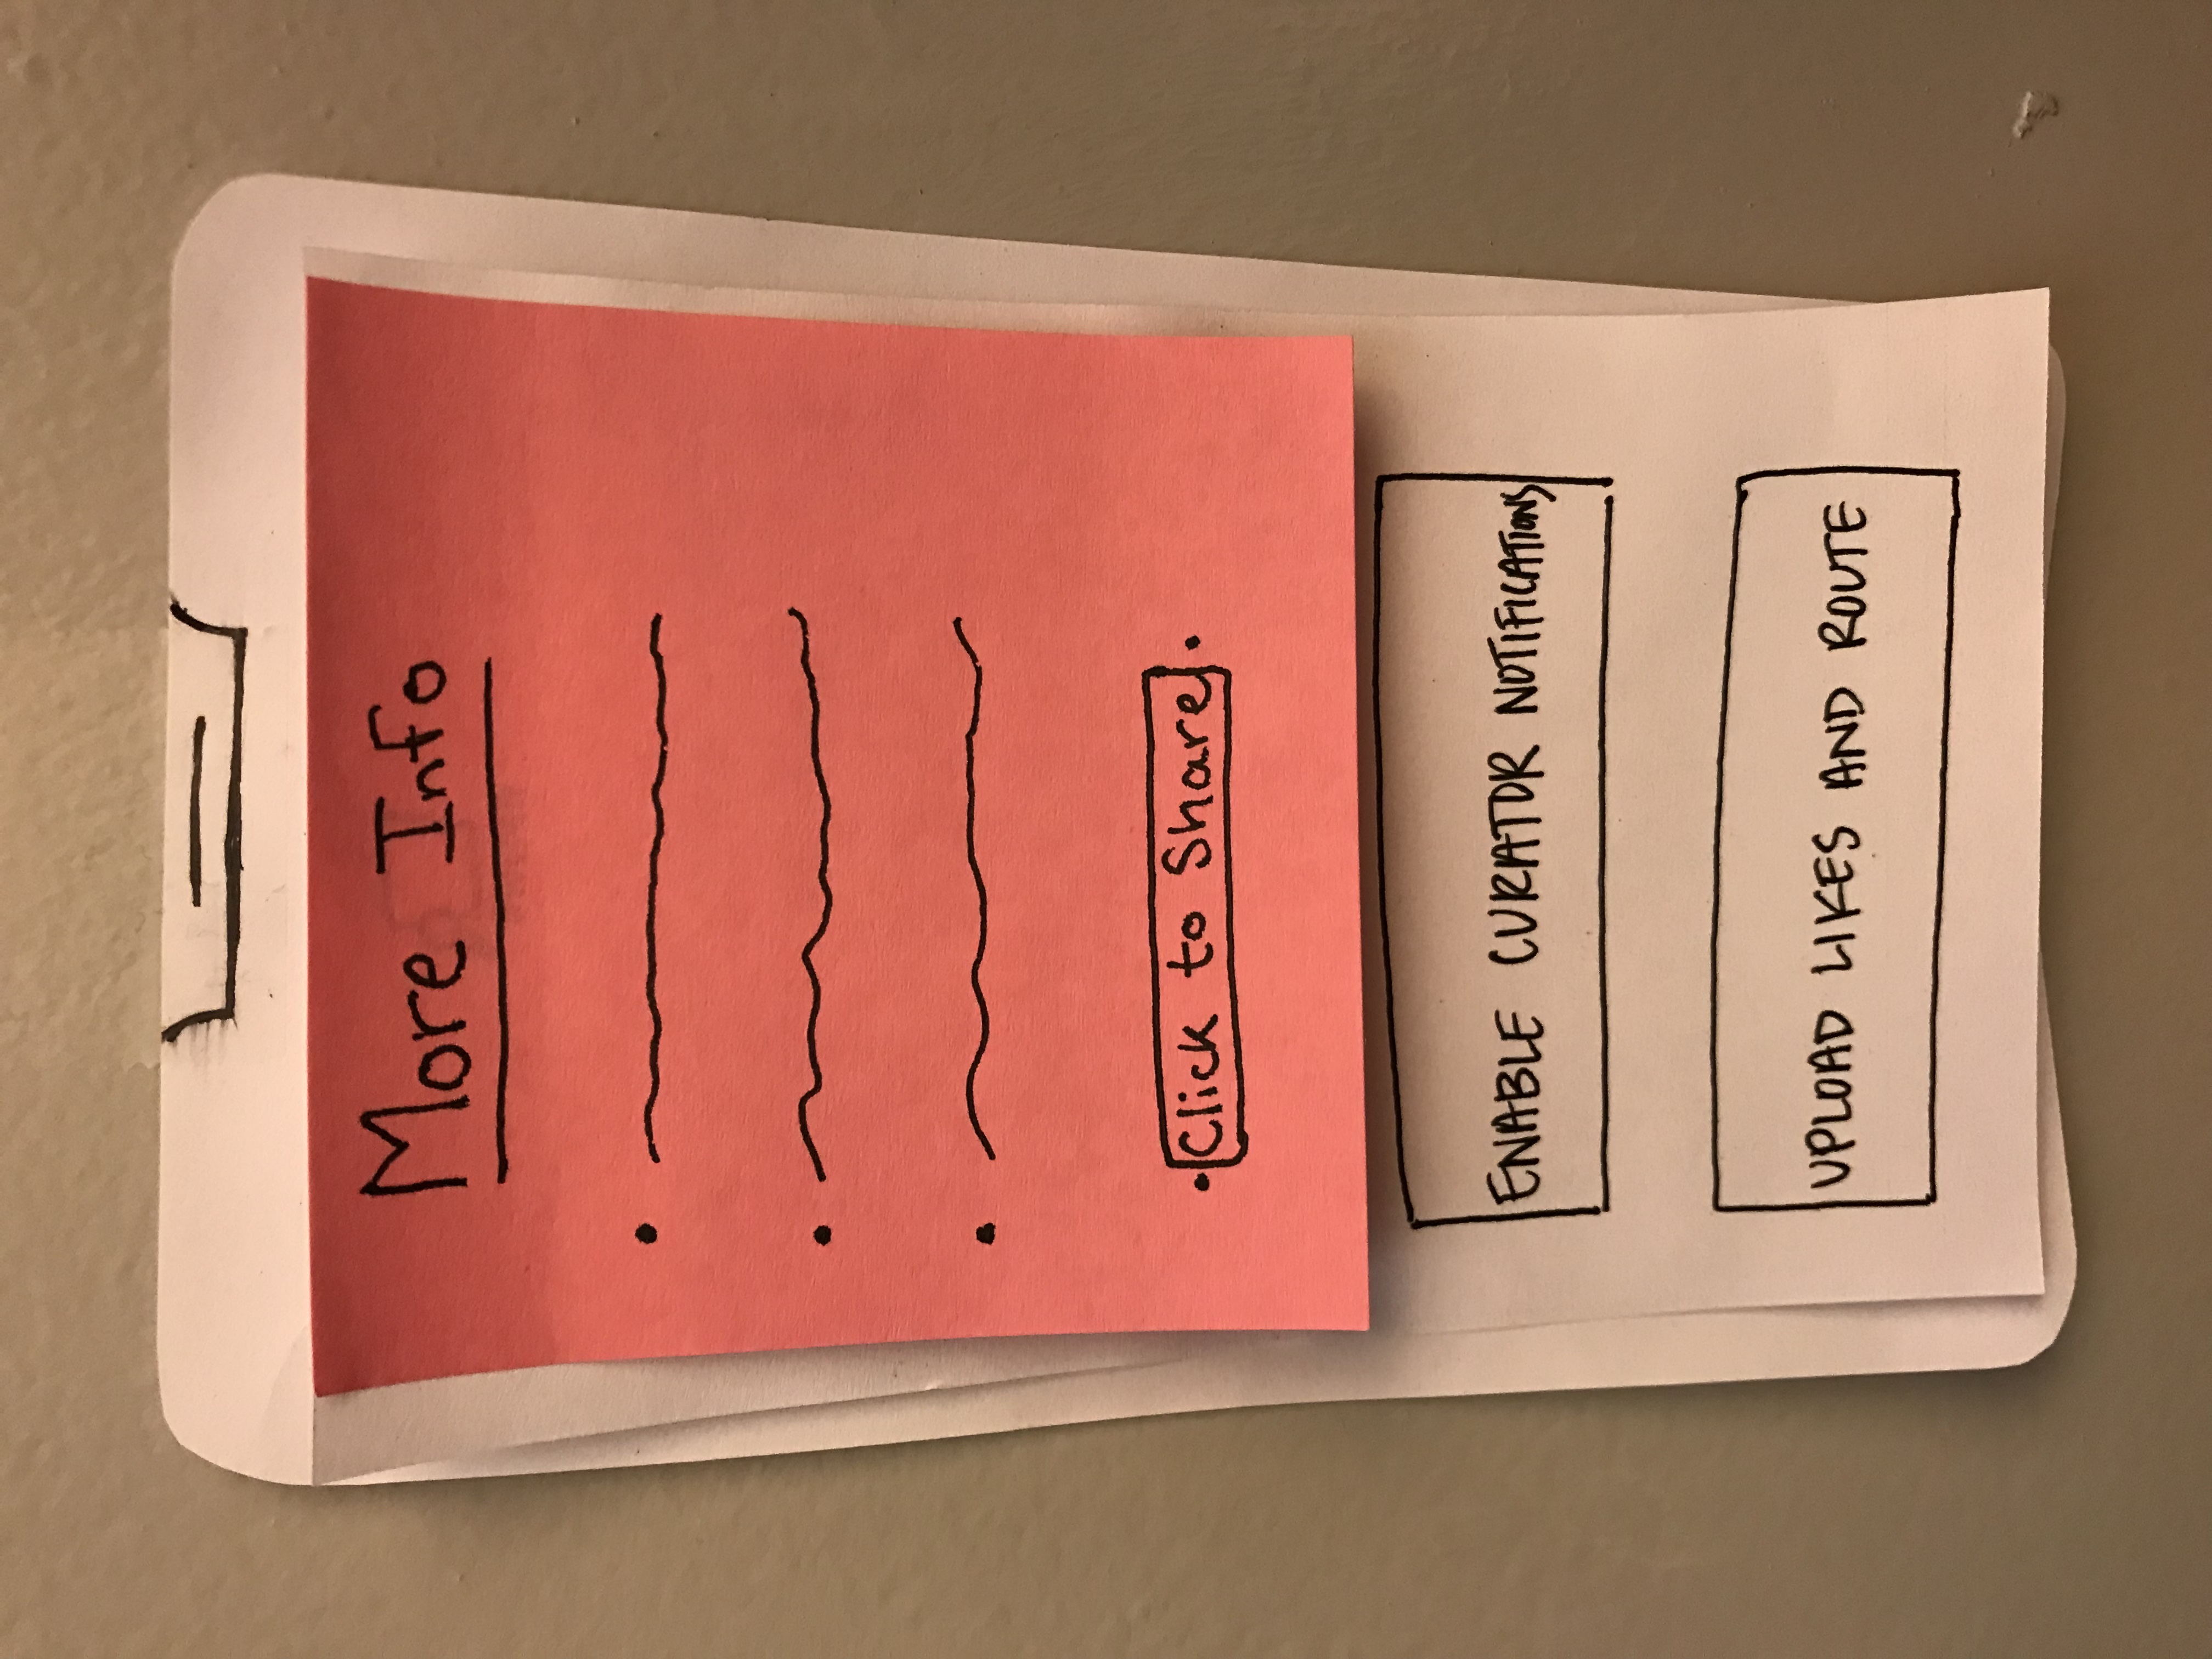 More Info
Click to Share
ENABLE CURATOR NOTIFICATIONS
UPLOAD LIKES AND ROUTE